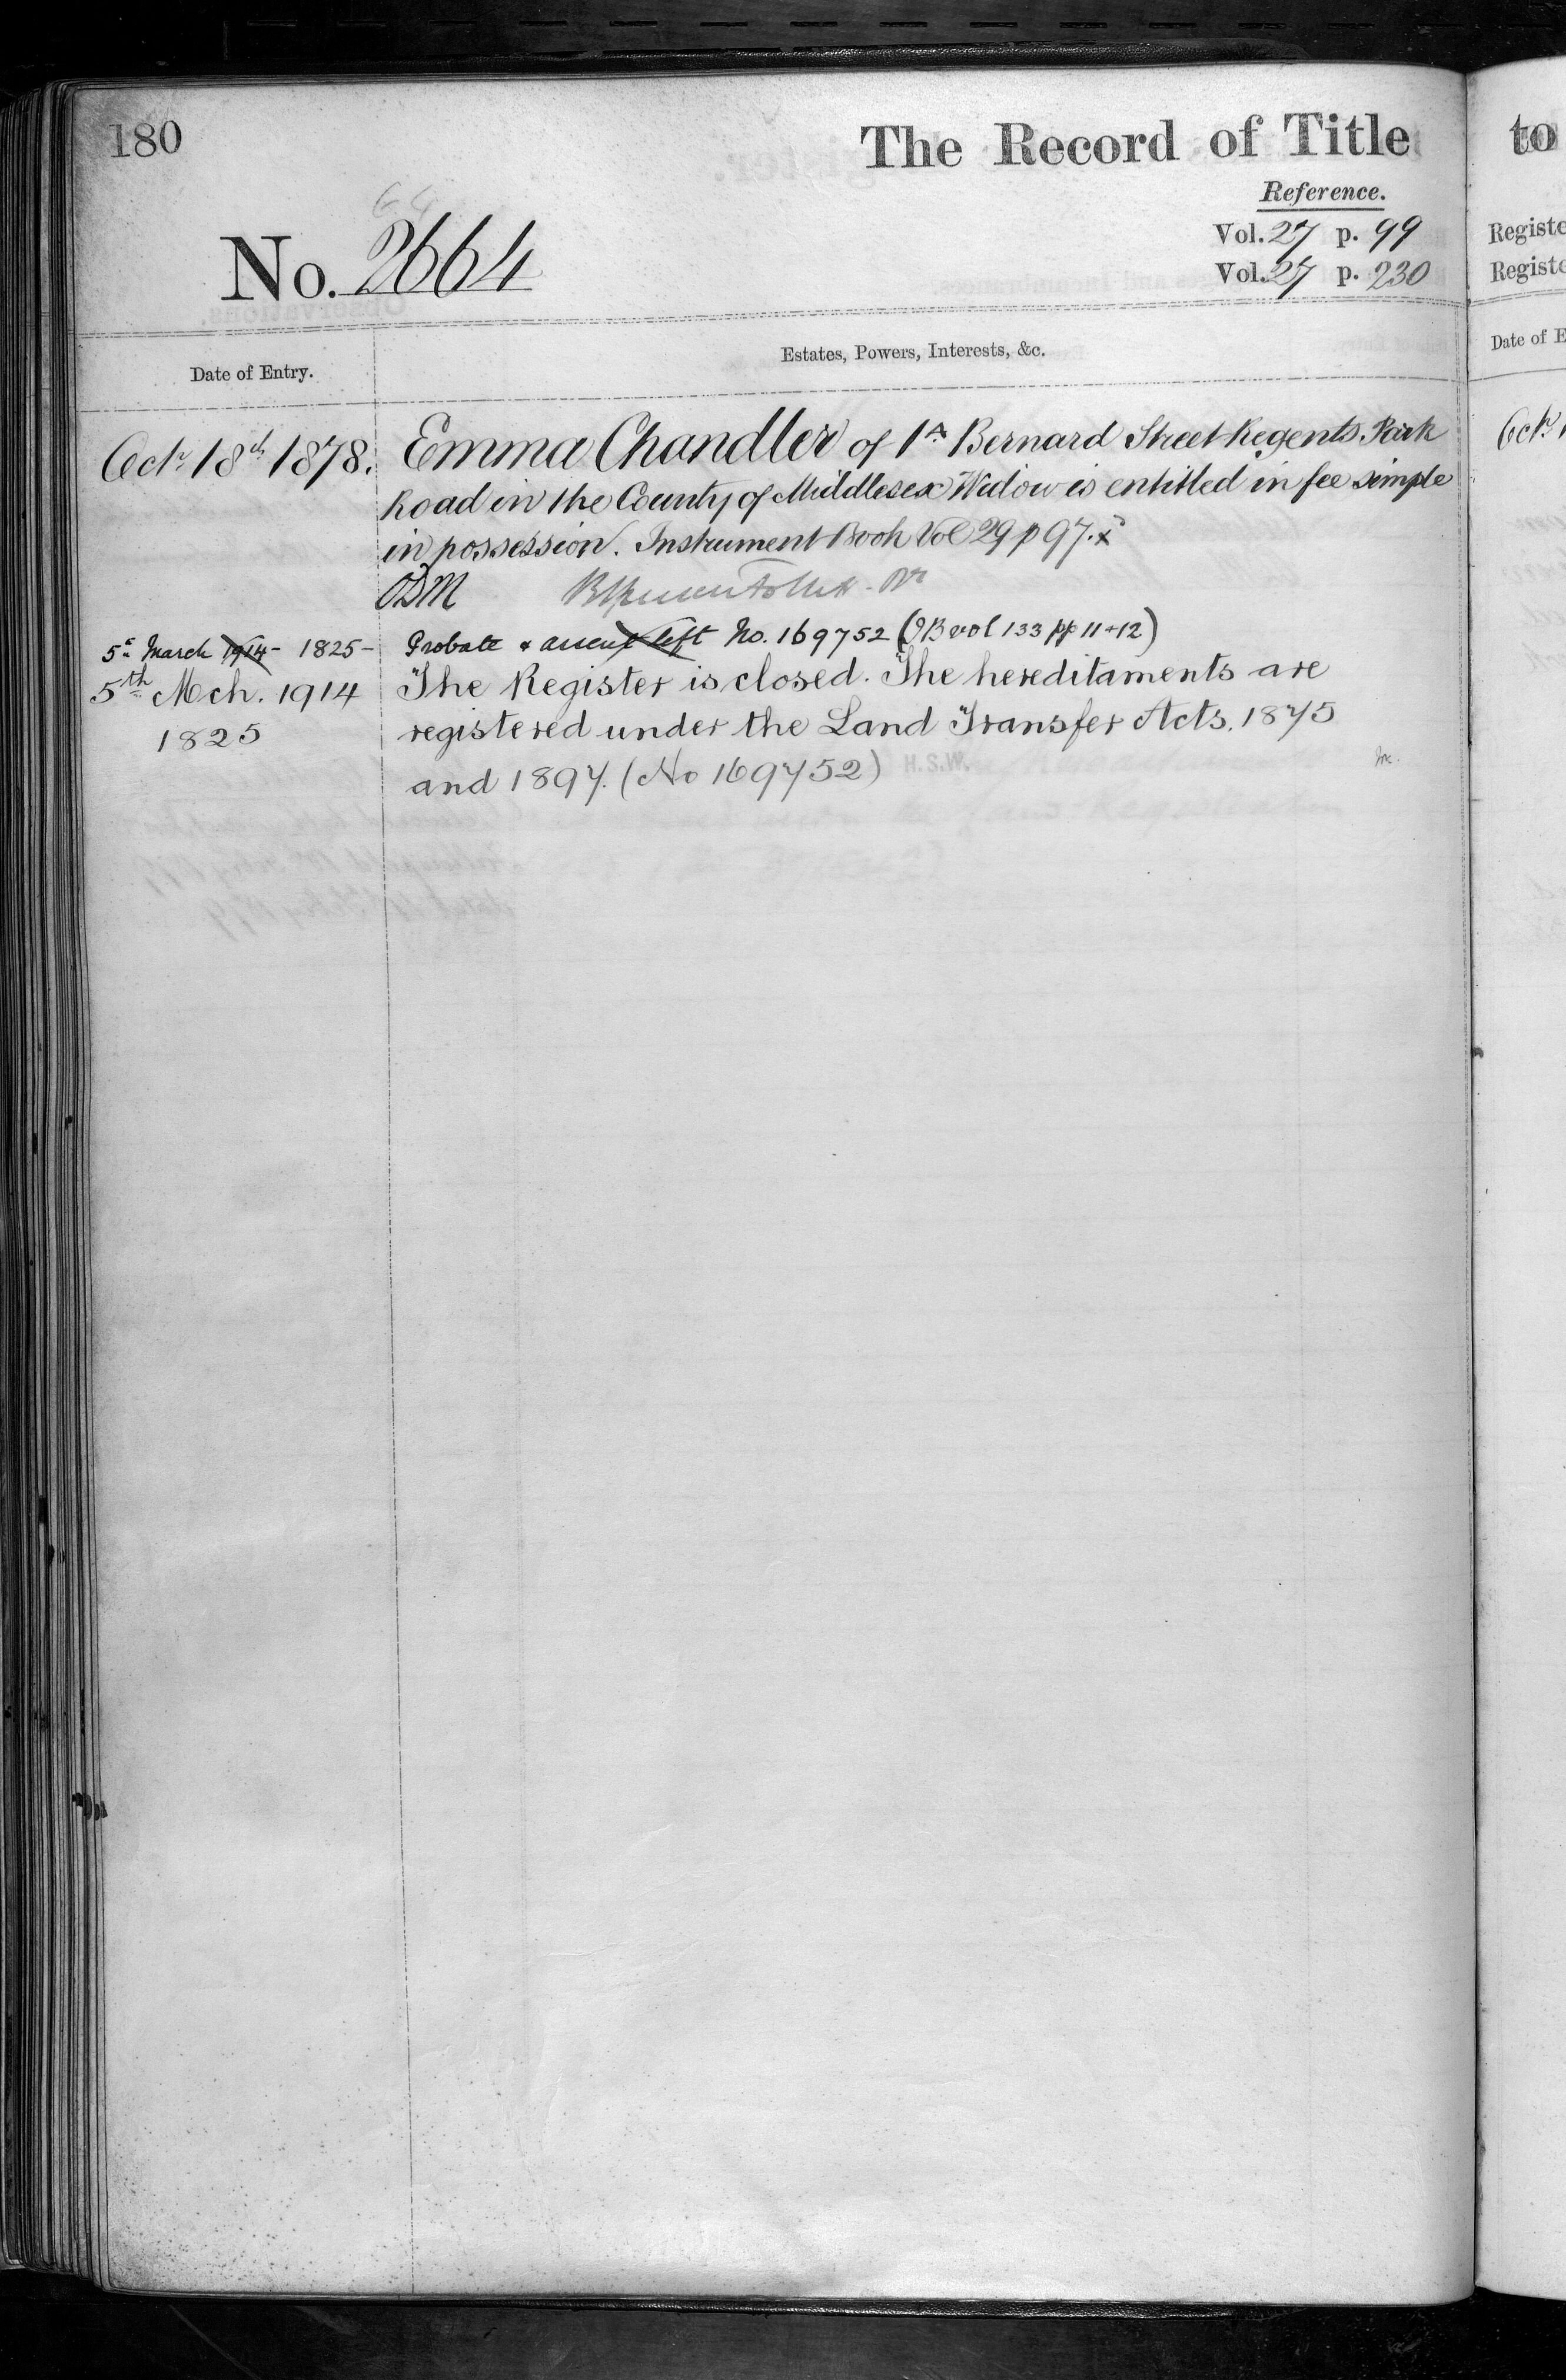 180
The Record of Title
to
Reference.
No. 2664
Vol. 27 p. 99
Vol. 27 p. 230
Registe
Registe
Date of Entry.
Estates, Powers, Interests, &c.
Date of E
Octr. 18th 1878. Emma Chandler of 1A Bernard Street Regents Park
Road in the County of Middlesex Widow is entitled in fee simple
in possession. Instrument Book Vol 29 p 97. x
ODM
5th March 1914 - 1825 - Probate & assent left No. 169752 (IB vol 133 pp 11+12)
5th Mch. 1914 The Register is closed. The hereditaments are
1825 registered under the Land Transfer Acts. 1875
and 1897. (No 169752) H.S.W.
Octr. 1